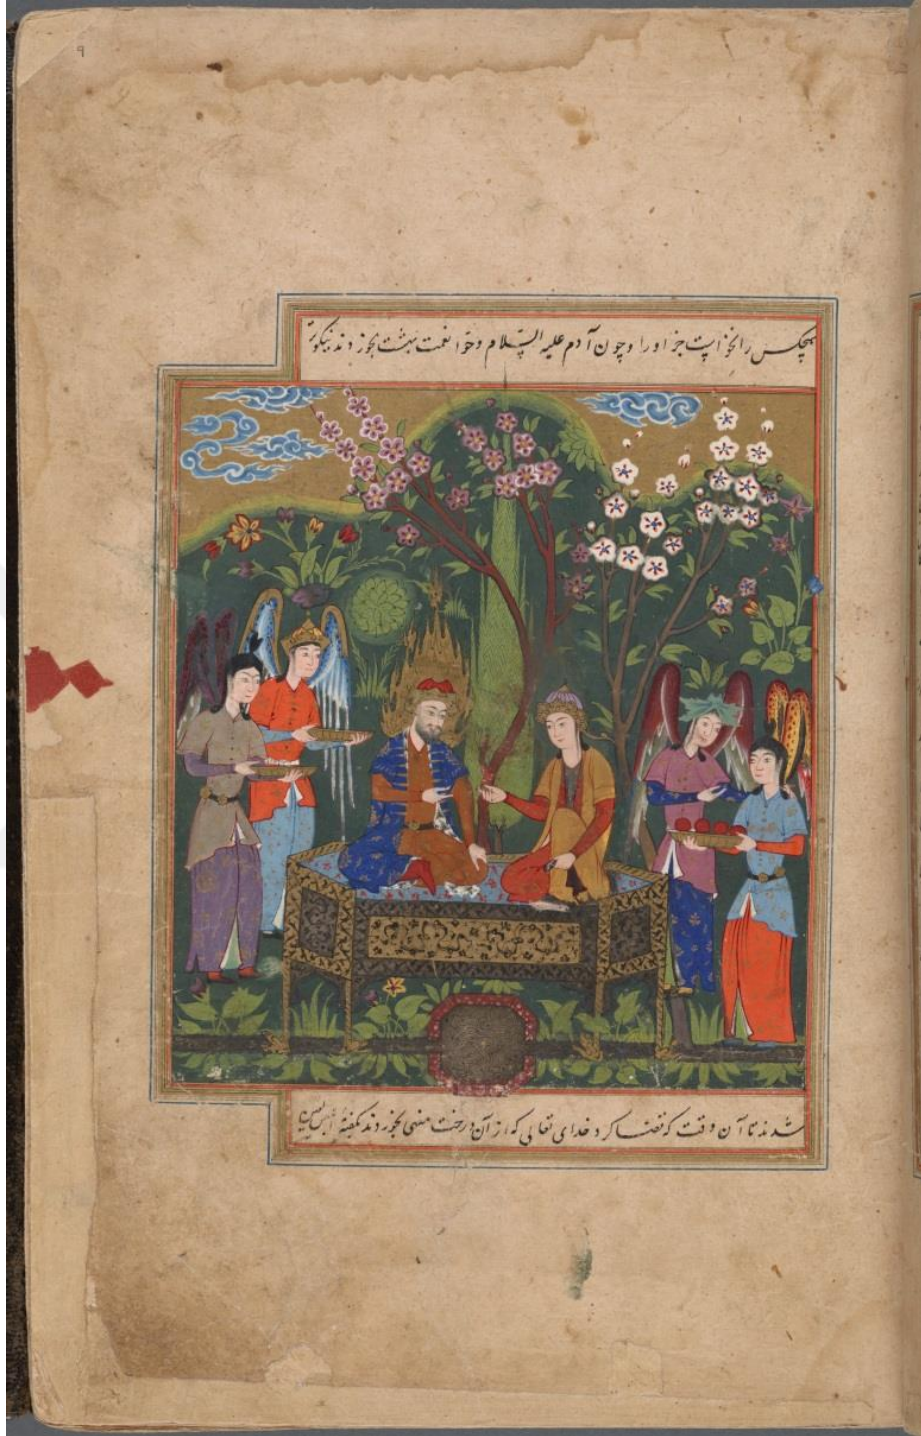 ۹
هیچکس را نخواست جز او را و چون آدم علیه السلام و حوا نعمت بهشت بخوردند نیکوتر
شدند تا آن وقت که قضا کرد خدای تعالی که از آن درخت منهی بخوردند بگفتهٔ ابلیس